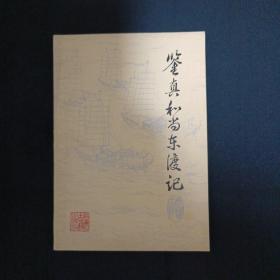 鉴真和尚东渡记